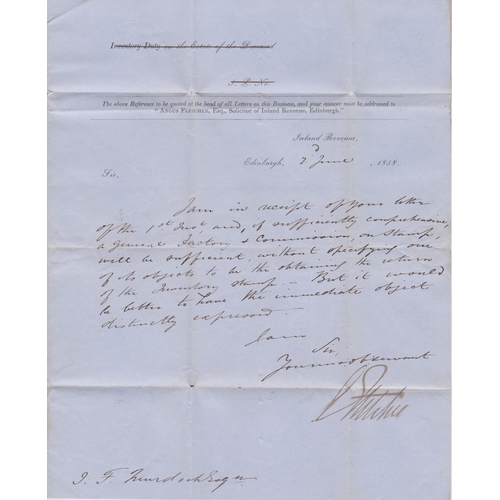 Inventory Duty on the Estate of the Deceased
I. R. No.
The above Reference to be quoted at the head of all Letters on this Business, and your answer must be addressed to
"ANGUS FLETCHER, Esq., Solicitor of Inland Revenue, Edinburgh."
Inland Revenue,
Edinburgh, 3d June, 1858.
Sir,
I am in receipt of your letter
of the 1st Inst, and, if sufficiently comprehensive,
a General Factory & Commission, on Stamp
will be sufficient, without specifying one
of its objects to be the obtaining the return
of the Inventory Stamp. But it would
be better to have the immediate object
distinctly expressed.
I am
Sir,
Your most obt servant
J. F. Murdoch Esqr